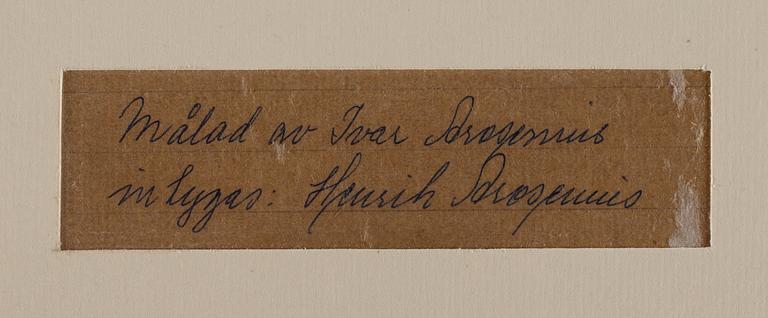 Målad av Ivar Arosenius
intygas: Henrik Arosenius